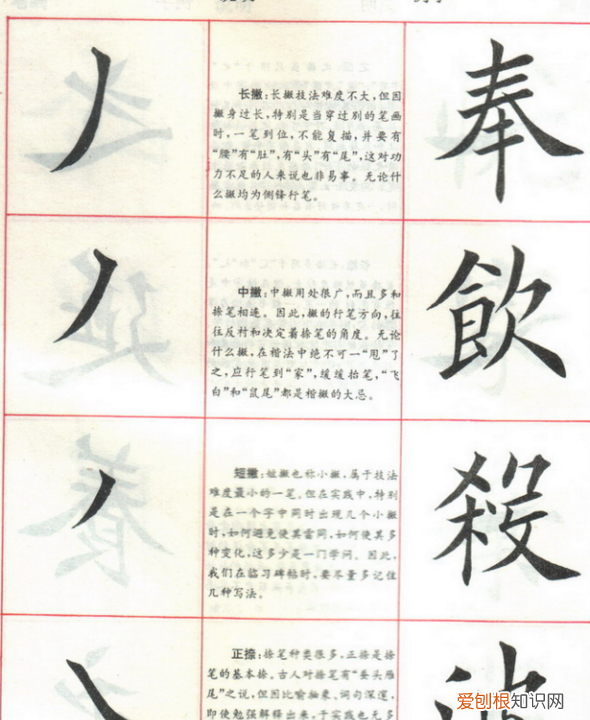 长撇:长撇技法难度不大,但因
撇身过长,特别是当穿过别的笔画
时,一笔到位,不能复描,并要有
“腰”有“肚”,有“头”有“尾”,这对功
力不足的人来说也非易事。无论什
么撇均为侧锋行笔。
奉
中撇:中撇用处很广,而且多和
捺笔相连。因此,撇的行笔方向,往
往反衬和决定着捺笔的角度。无论
什么撇,在楷法中绝不可一“甩”了
之,应行笔到“家”,缓缓抬笔,“飞
白”和“鼠尾”都是楷撇的大忌。
飲
短撇:短撇也称小撇,属于技法
难度最小的一笔。但在实践中,特别
是在一个字中同时出现几个小撇
时,如何避免使其雷同,如何使其多
种变化,这多少是一门学问。因此,
我们在临习碑帖时,要尽量多记住
几种写法。
殺
正捺:捺笔种类很多,正捺是捺
笔的基本捺。古人对捺笔有“蚕头雁
尾”之说,但因比喻抽象,词句深涩,
即使勉强解释出来,于实践也无多
爱刨根知识网